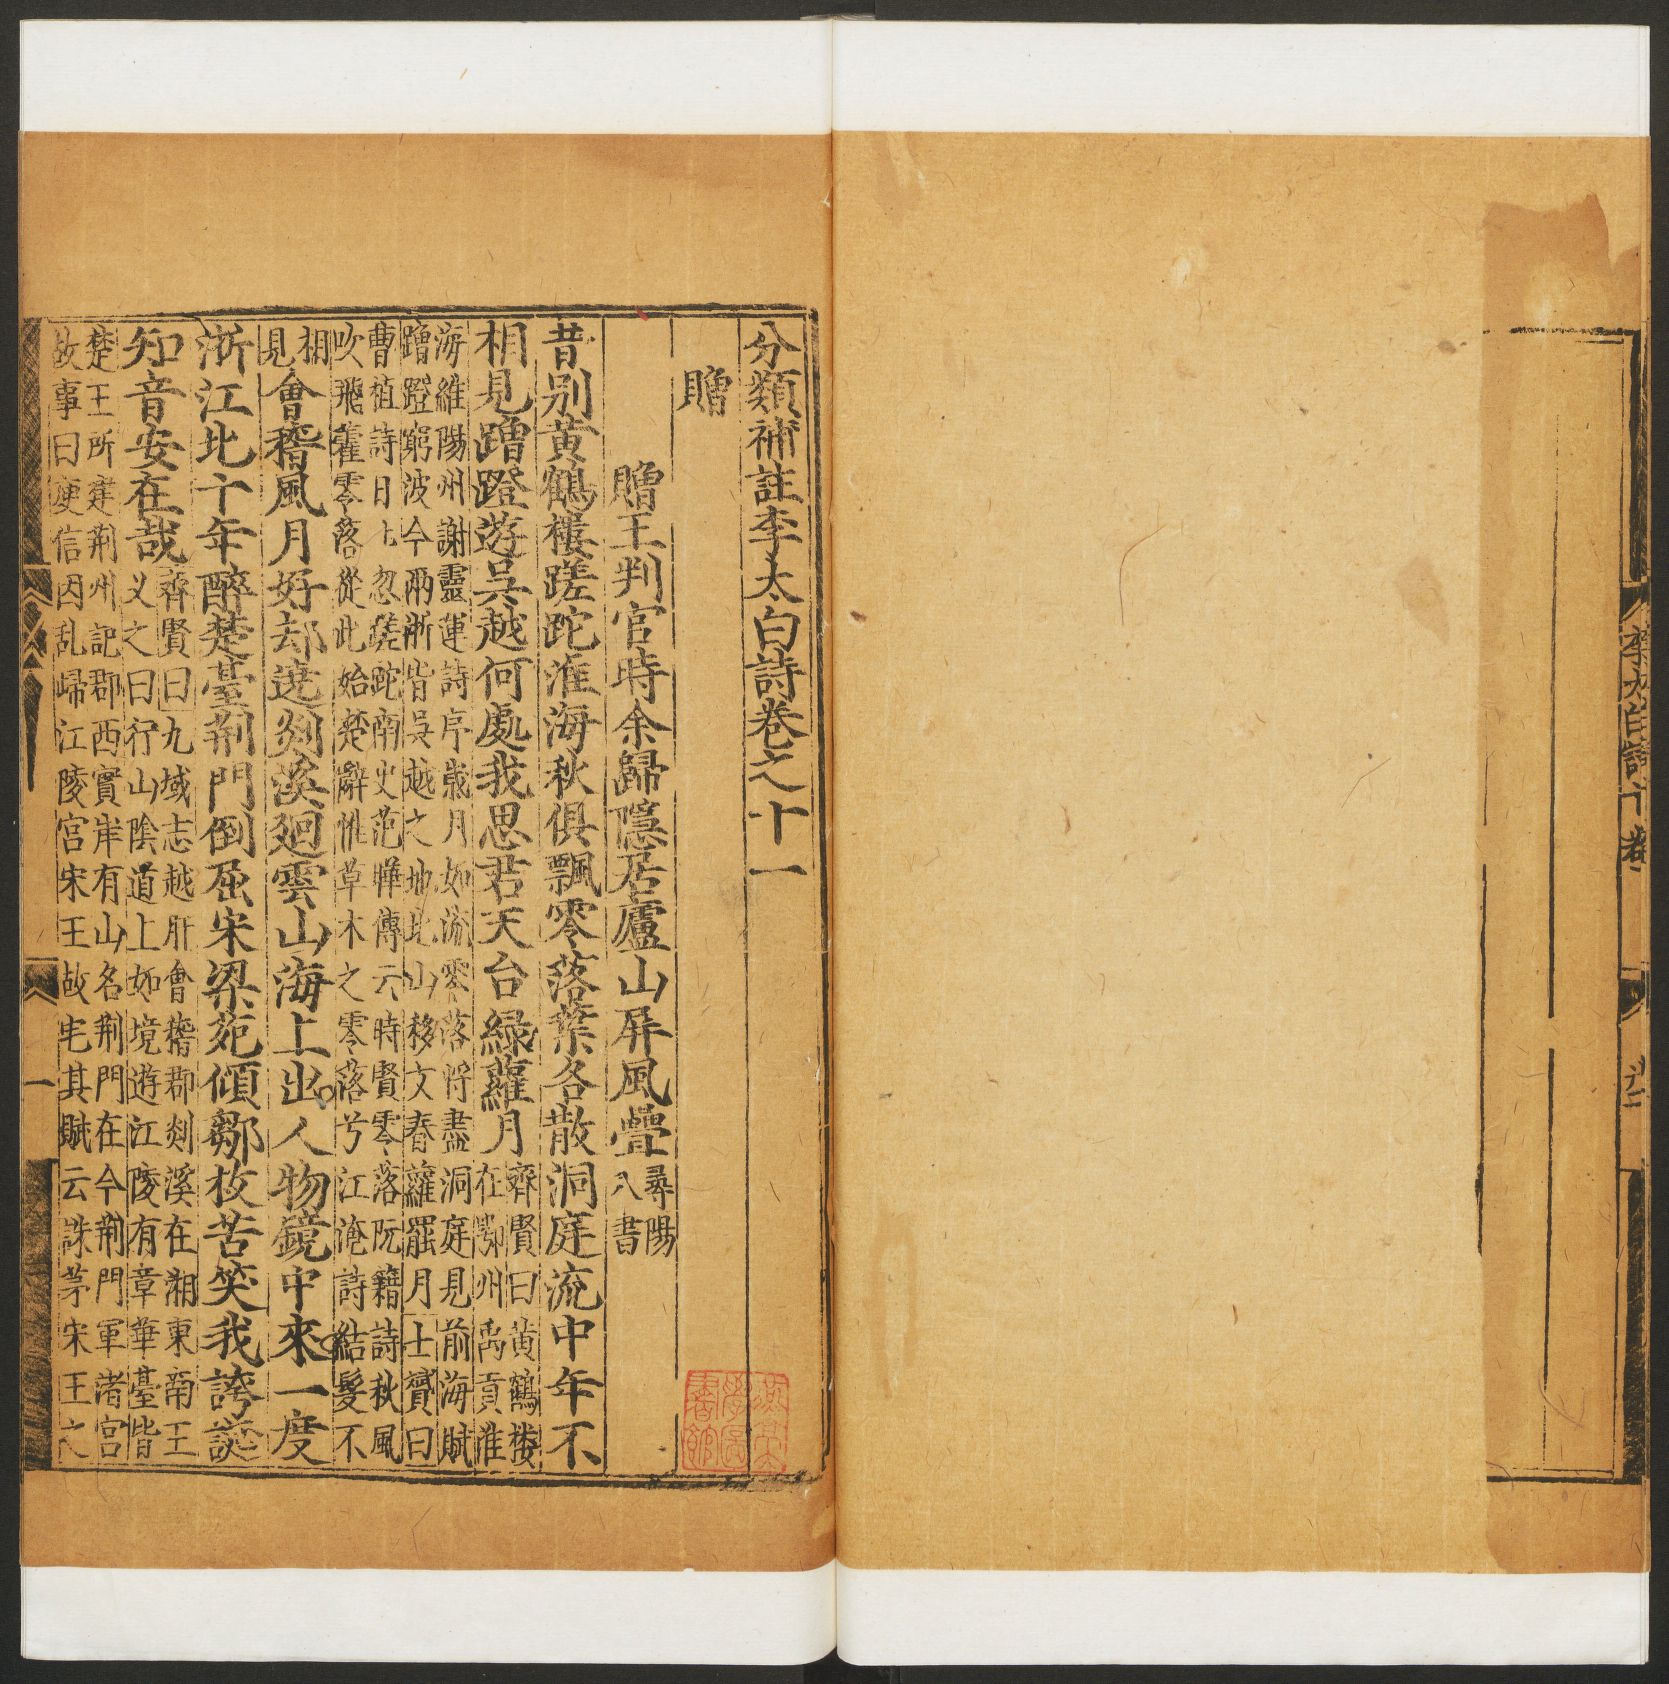 分類補註李太白詩卷之十一
贈
贈王判官時余歸隱居廬山屏風疊
尋陽
八書
昔别黄鶴樓蹉跎淮海秋俱飄零落葉各散洞庭流中年不
相見蹭蹬遊吳越何處我思君天台緑蘿月
齊賢曰黄鶴楼
在鄂州禹貢淮
海維陽州謝靈運詩序歲月如流零落將盡洞庭見前海賦
蹭蹬窮波今兩浙皆吳越之地北山移文春蘿罷月士贇曰
曹植詩日月忽蹉跎南史范曄傳云時賢零落阮籍詩秋風
吹飛藿零落從此始楚辭惟草木之零落兮江淹詩結髮不
相
見
會稽風月好却遶剡溪廻雲山海上出人物鏡中來一度
浙江北十年醉楚臺荆門倒屈宋梁苑傾鄒枚苦笑我誇誕
知音安在哉
齊賢曰九域志越州會稽郡剡溪在湘東南王
乂之曰行山陰道上如境遊江陵有章華臺皆
楚王所建荆州記郡西實岸有山名荆門在今荆門軍渚宫
故事曰庾信因乱歸江陵宫宋王故宅其賦云誅茅宋王之
一
李太白詩十卷